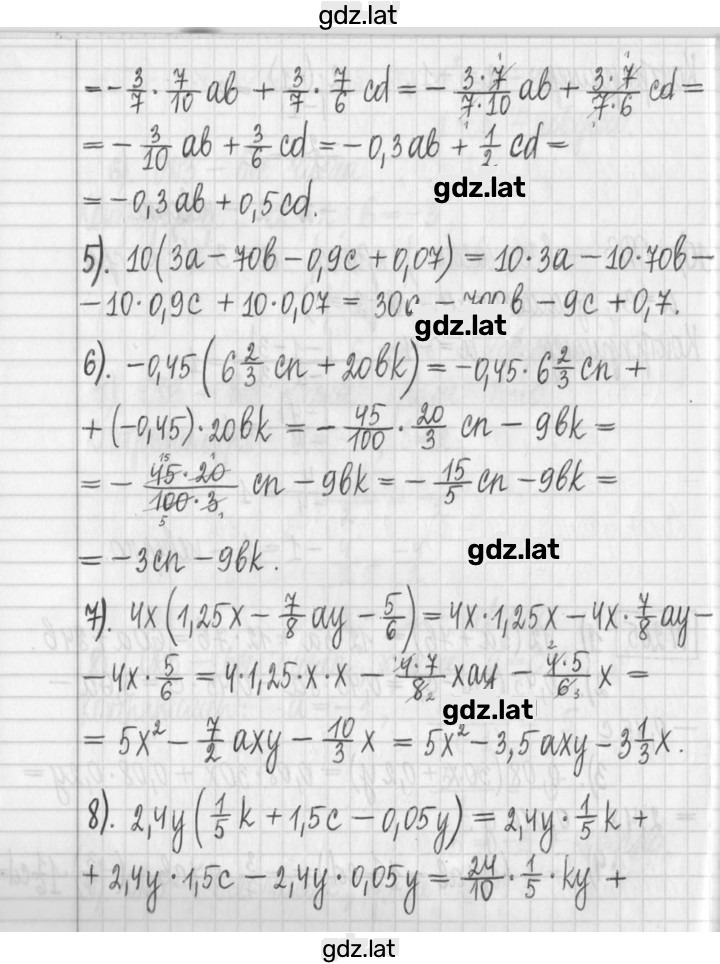 gdz.lat
= - 3/7 · 7/10 ab + 3/7 · 7/6 cd = - 3·7/7·10 ab + 3·7/7·6 cd =
= - 3/10 ab + 3/6 cd = -0,3ab + 1/2 cd =
gdz.lat
= -0,3ab + 0,5cd.
5). 10(3a - 70b - 0,9c + 0,07) = 10·3a - 10·70b -
- 10·0,9c + 10·0,07 = 30a - 700b - 9c + 0,7.
gdz.lat
6). -0,45(6 2/3 cn + 20bk) = -0,45·6 2/3 cn +
+ (-0,45)·20bk = - 45/100 · 20/3 cn - 9bk =
= - 45·20/100·3 cn - 9bk = - 15/5 cn - 9bk =
= -3cn - 9bk.
gdz.lat
7). 4x(1,25x - 7/8 ay - 5/6) = 4x·1,25x - 4x·7/8 ay -
- 4x·5/6 = 4·1,25·x·x - 4·7/8 xay - 4·5/6 x =
gdz.lat
= 5x² - 7/2 axy - 10/3 x = 5x² - 3,5axy - 3 1/3 x.
8). 2,4y(1/5 k + 1,5c - 0,05y) = 2,4y·1/5 k +
+ 2,4y·1,5c - 2,4y·0,05y = 24/10 · 1/5 · ky +
gdz.lat